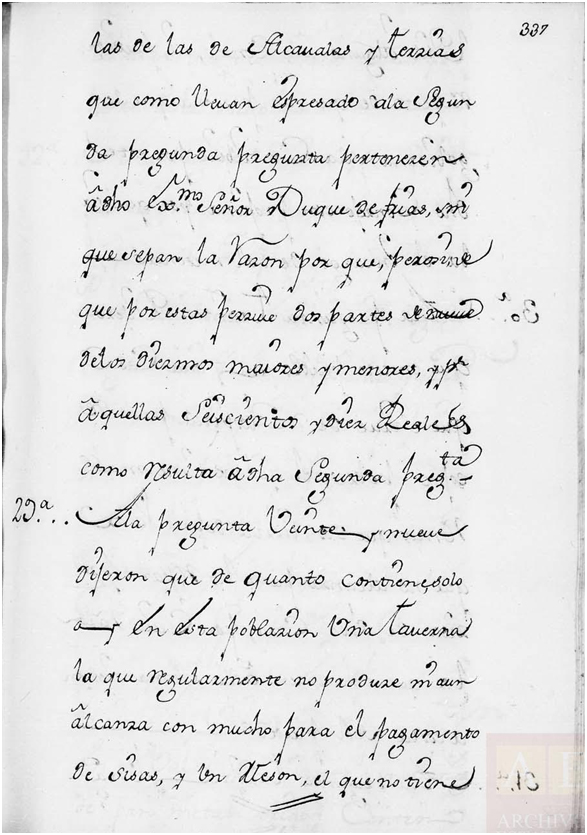 337
las de las de Alcaualas y terzias
que como lleuan espresado ala Segun
da pregunda pregunta pertenezen
âdho Ex.mo Señor Duque de frias, sin
que sepan la Razon por que, perziue
que por estas perziue dos partes de nueue
delos diezmos maiores y menores, y pr
âquellas Seiscientos y diez Reales
como resulta âdha Segunda preg.ta
29ª... Ala pregunta Veinte y nueue
dijeron que de quanto contiene, solo
ay en esta poblazion Una tauerna
la que regularmente no produze ni aun
âlcanza con mucho para el pagamento
de sisas, y Un Meson, el que no tiene
ARCHIV